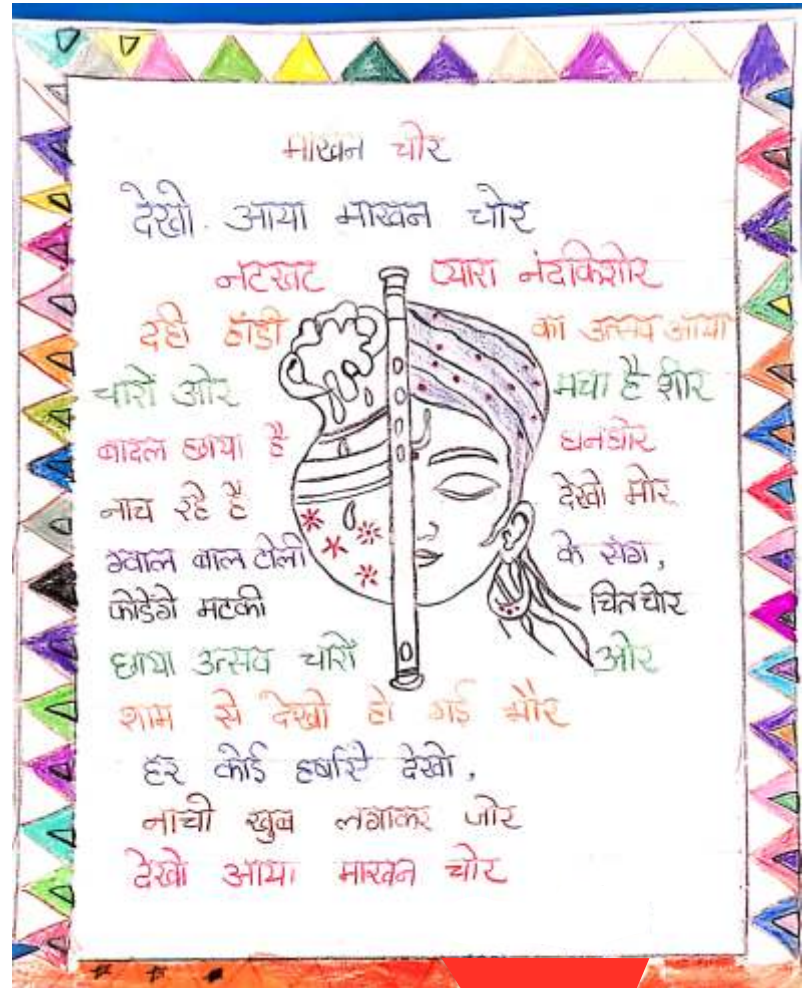 माखन चोर
देखो आया माखन चोर
नटखट प्यारा नंदकिशोर
दही हांडी का उत्सव आया
चारों ओर मचा है शोर
बादल छाया है घनघोर
नाच रहे है देखो मोर
ग्वाल बाल टोली के संग,
फोडेगे मटकी चितचोर
छाया उत्सव चारों ओर
शाम से देखो हो गई भोर
हर कोई हर्षाए देखो,
नाचो खुब लगाकर जोर
देखो आया माखन चोर